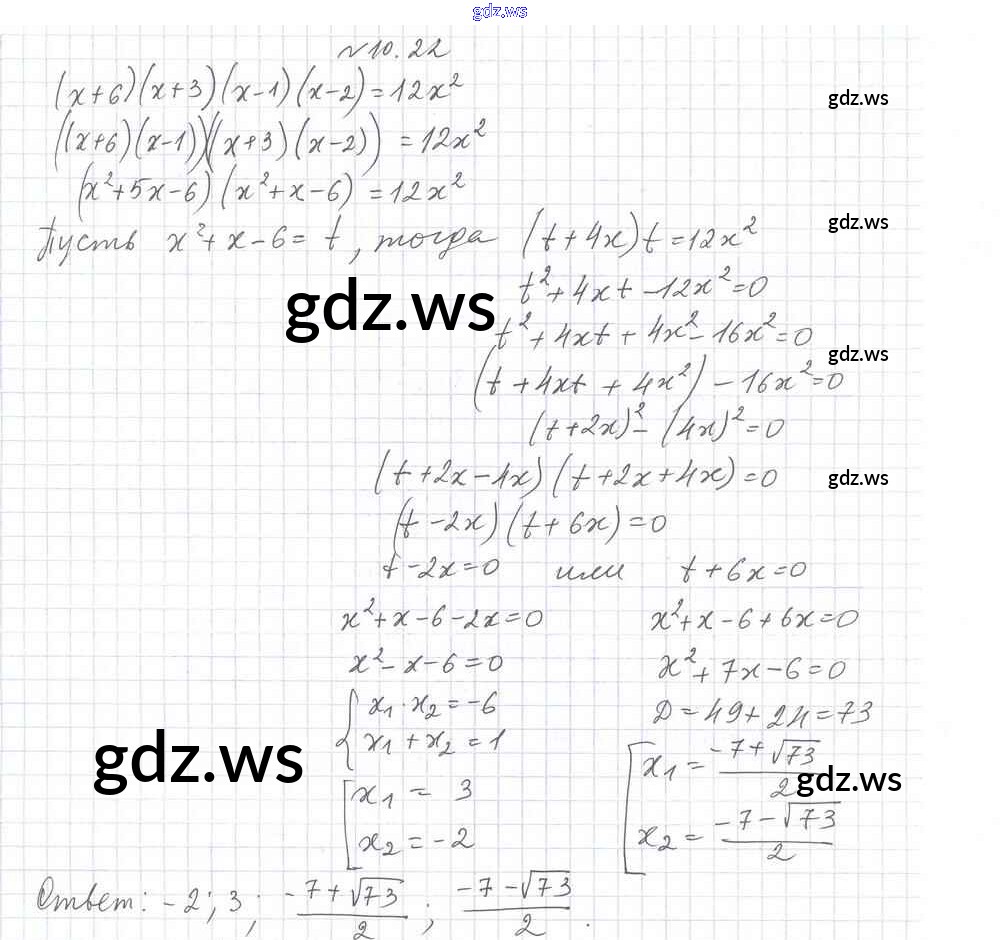 gdz.ws
№10.22
(x+6)(x+3)(x-1)(x-2)=12x²
gdz.ws
((x+6)(x-1))((x+3)(x-2)) =12x²
(x²+5x-6)(x²+x-6) =12x²
Пусть x²+x-6=t, тогда (t+4x)t=12x²
gdz.ws
t²+4xt-12x²=0
gdz.ws
t²+4xt+4x²-16x²=0
gdz.ws
(t+4xt+4x²)-16x²=0
(t+2x)²-(4x)²=0
(t+2x-4x)(t+2x+4x)=0
gdz.ws
(t-2x)(t+6x)=0
t-2x=0 или t+6x=0
x²+x-6-2x=0 x²+x-6+6x=0
x²-x-6=0 x²+7x-6=0
{x₁·x₂=-6 D=49+24=73
x₁+x₂=1 [x₁=(-7+√73)/2
gdz.ws
gdz.ws
[x₁=3
x₂=-2 x₂=(-7-√73)/2
Ответ: -2; 3; (-7+√73)/2; (-7-√73)/2.